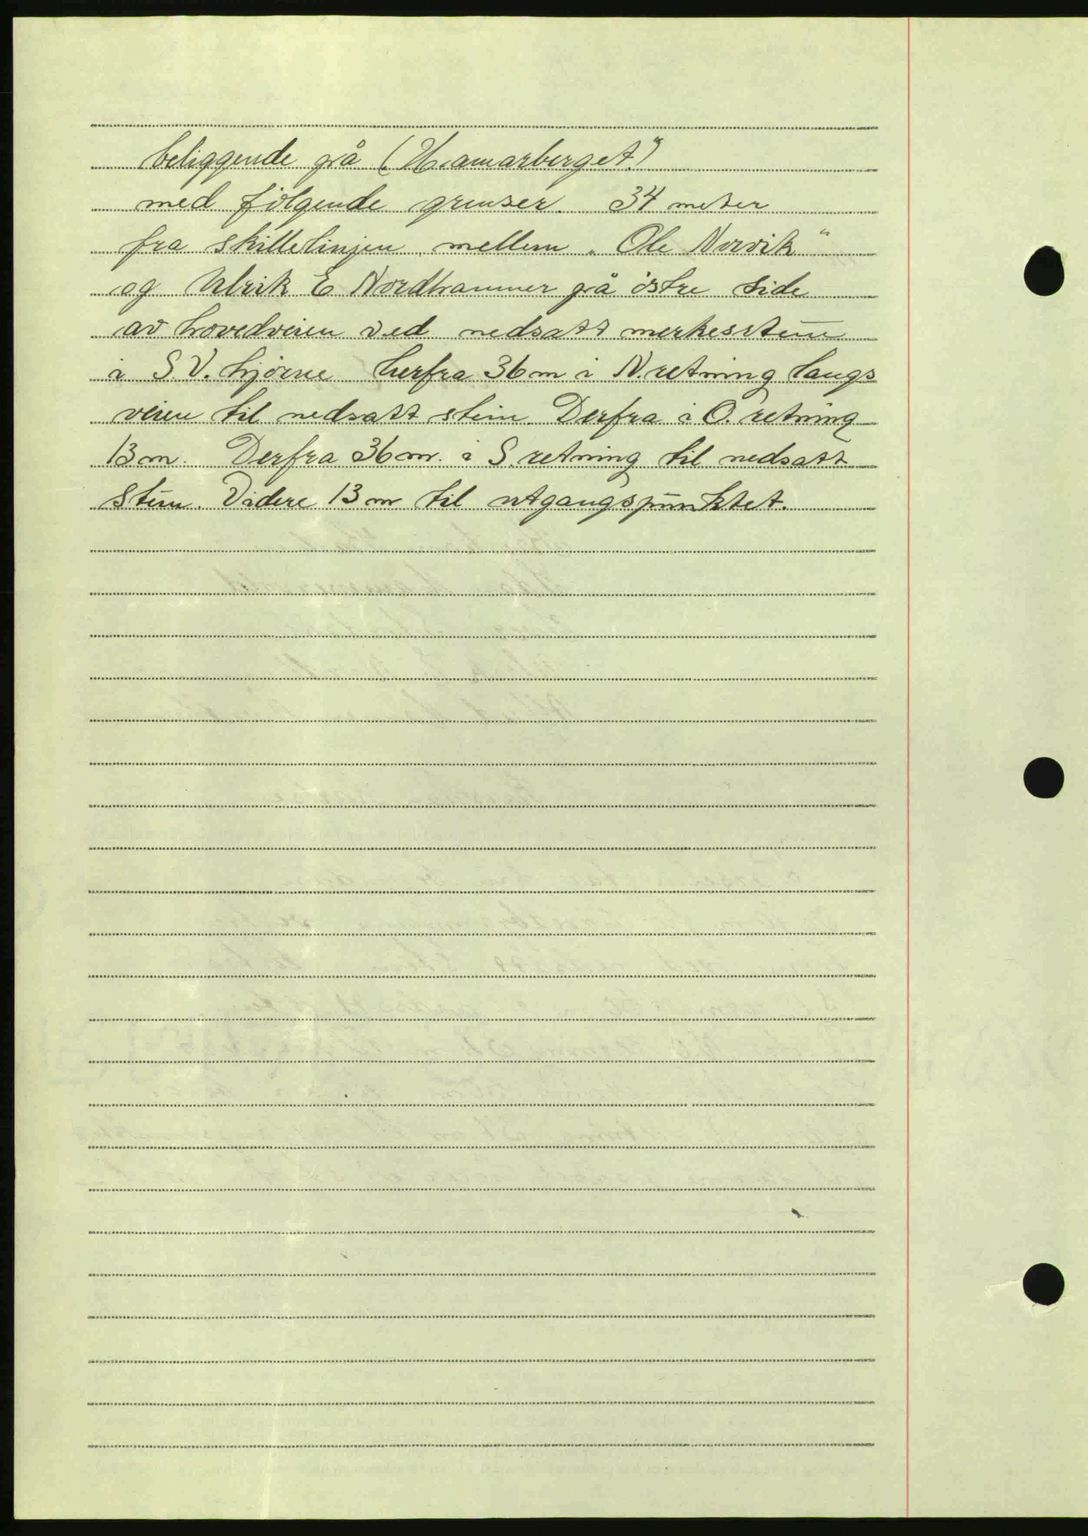 beliggende på (Hamarberget")
med følgende grenser. 34 meter
fra skillelinjen mellem „Ole Norvik"
og Ulrik E Nordhammer på østre side
av hovedveien ved nedsatt merkesstein
i S.V. hjörne herfra 36 m i N. retning langs
veien til nedsatt stein. Derfra i O. retning
13 m. Derfra 36 m. i S. retning til nedsatt
stein. Videre 13 m til utgangspunktet.